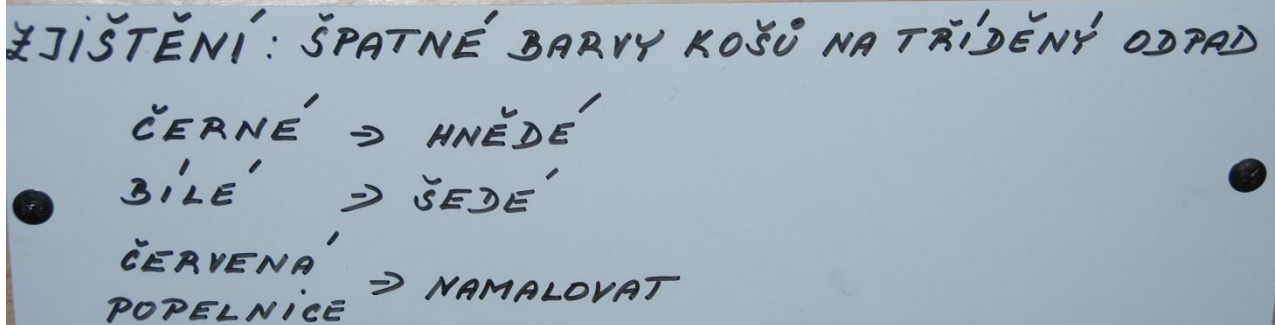 ZJIŠTĚNÍ: ŠPATNÉ BARVY KOŠŮ NA TŘÍDĚNÝ ODPAD
ČERNÉ ⇒ HNĚDÉ
BÍLÉ ⇒ ŠEDÉ
ČERVENÁ
POPELNICE ⇒ NAMALOVAT